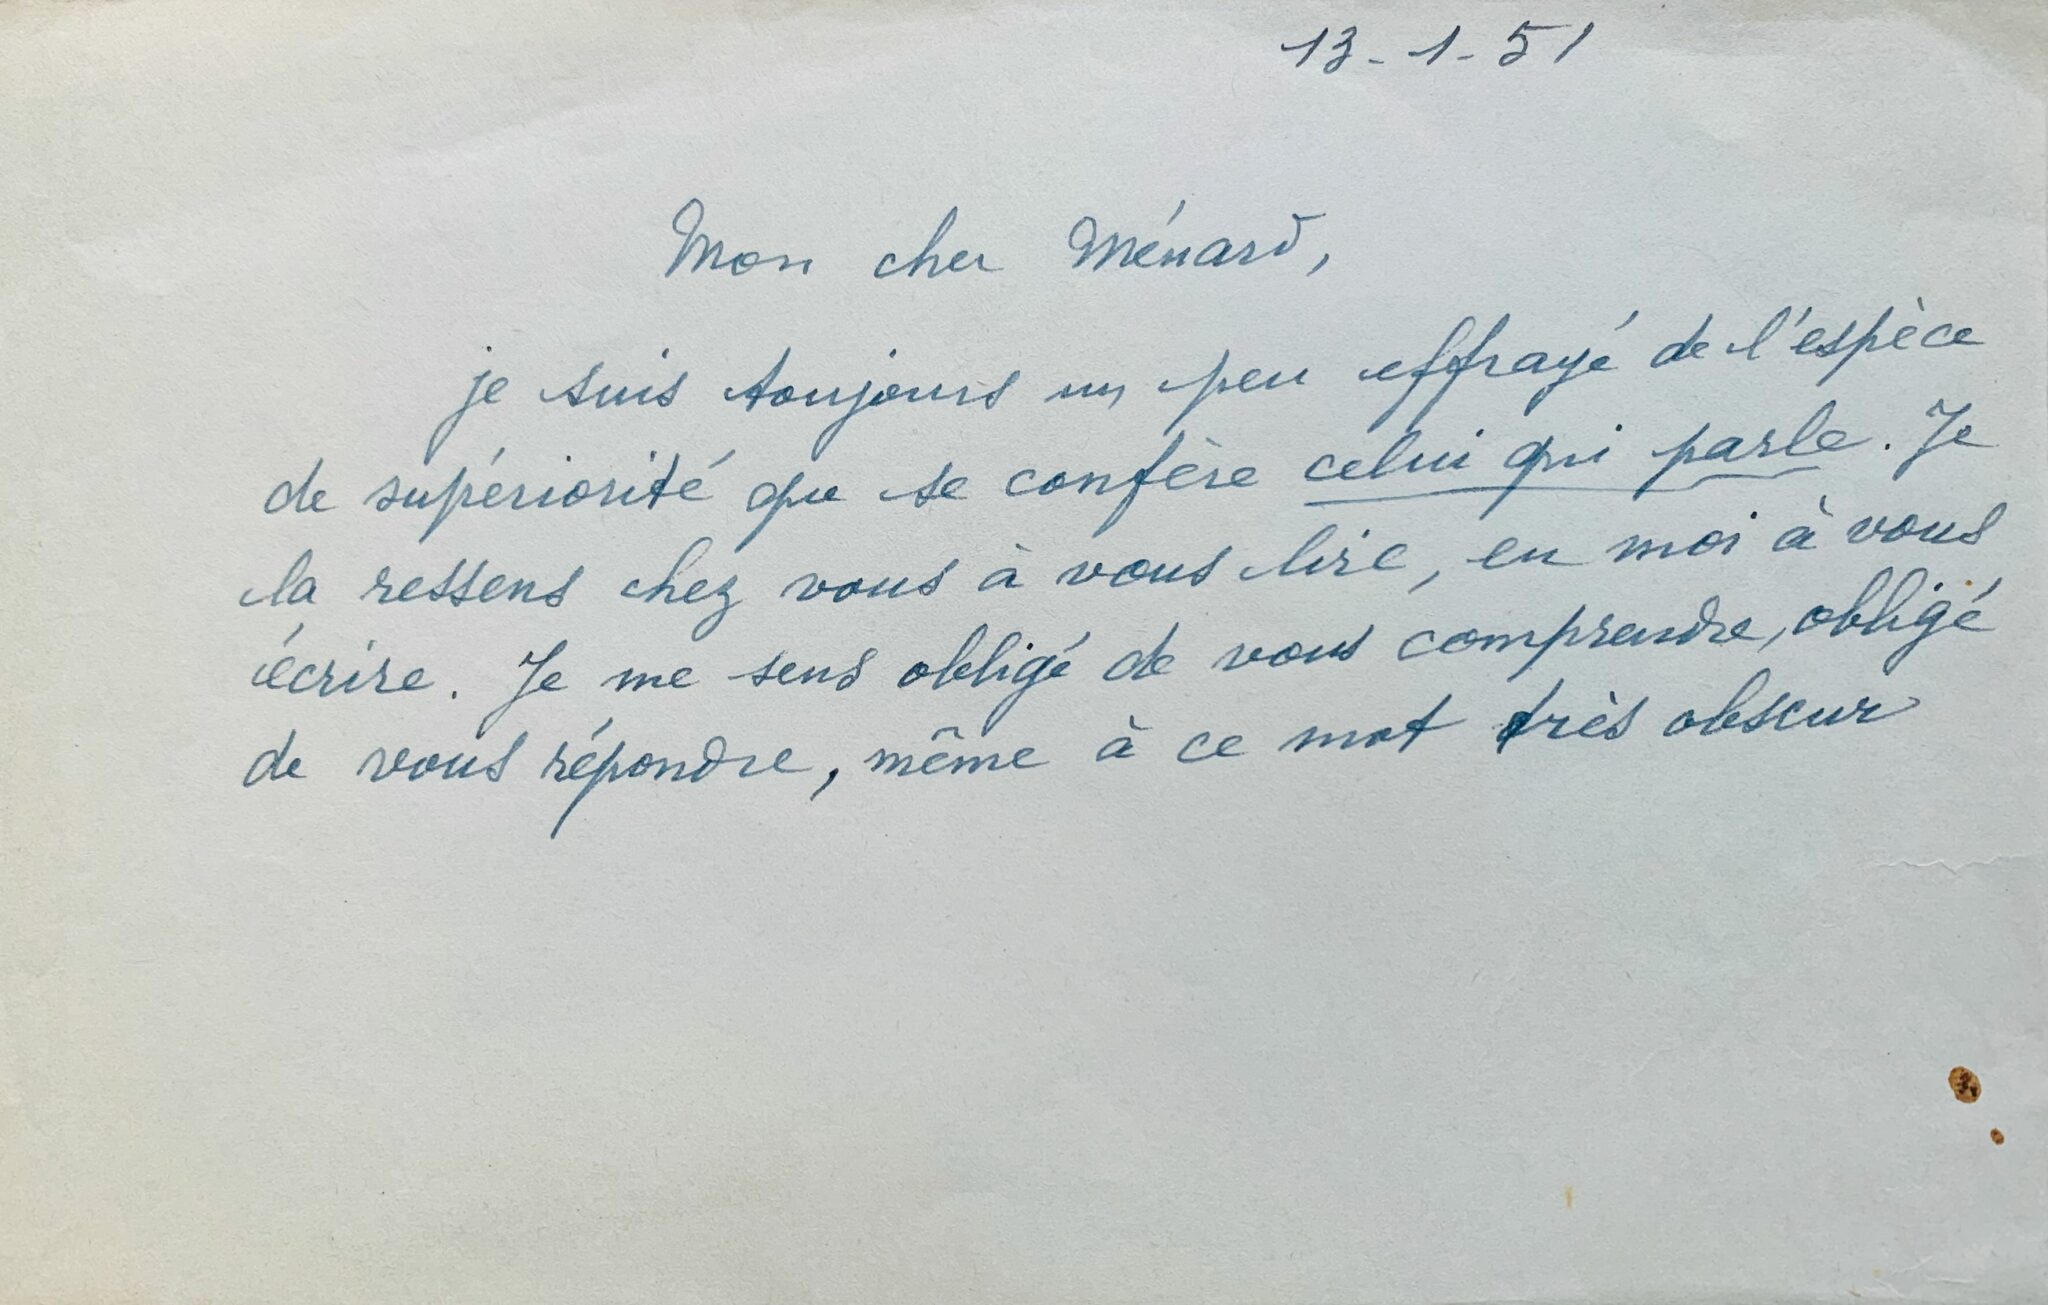 13-1-51
Mon cher Ménard,
je suis toujours un peu effrayé de l'espèce
de supériorité que se confère celui qui parle. Je
la ressens chez vous à vous lire, en moi à vous
écrire. Je me sens obligé de vous comprendre, obligé
de vous répondre, même à ce mot très obscur